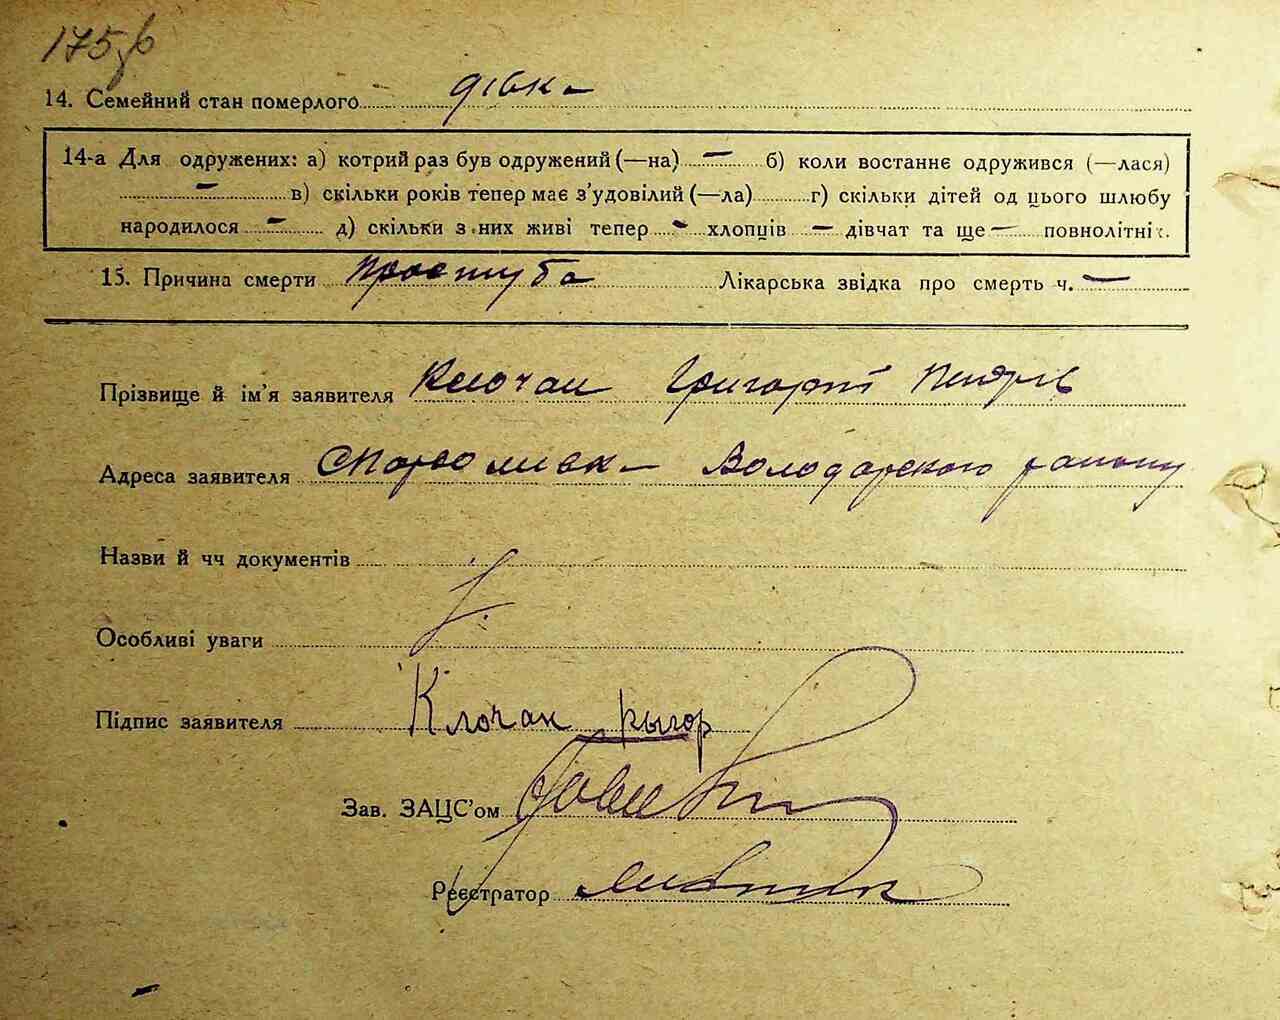 175
14. Семейний стан померлого дівка
14-а Для одружених: а) котрий раз був одружений (—на) — б) коли востаннє одружився (—лася)
— в) скільки років тепер має з'удовілий (—ла) г) скільки дітей од цього шлюбу
народилося — д) скільки з них живі тепер - хлопців — дівчат та ще — повнолітніх.
15. Причина смерти простуба Лікарська звідка про смерть ч. —
Прізвище й ім'я заявителя Клочан Григорій Петрів
Адреса заявителя Володарского району
Назви й чч документів
Особливі уваги
Підпис заявителя Клочан Рыгор
Зав. ЗАЦС'ом
Реєстратор